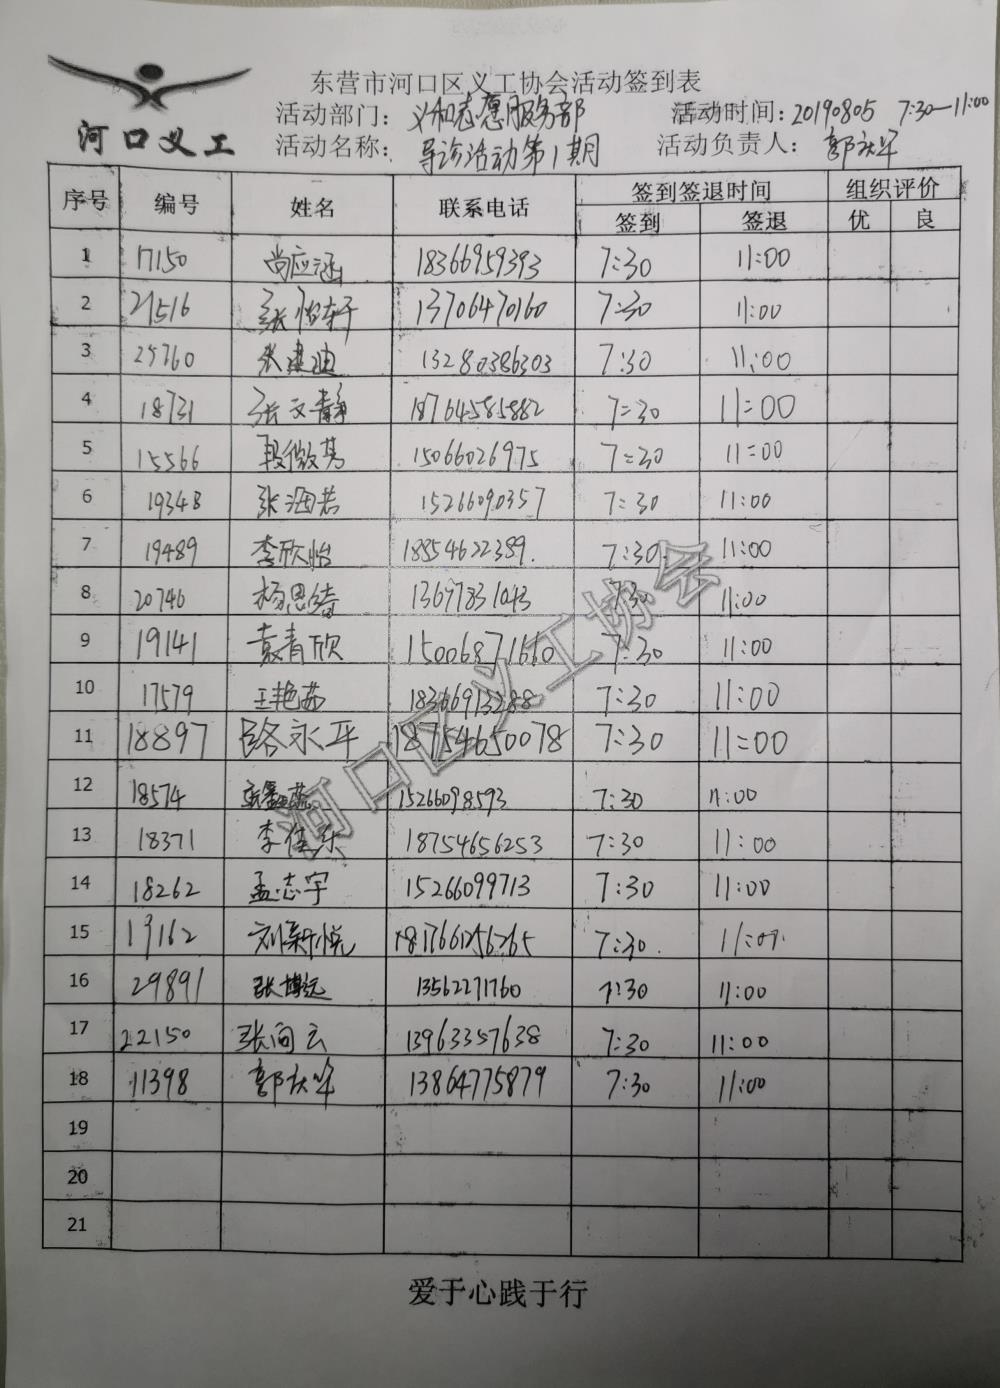 东营市河口区义工协会活动签到表
河口义工
活动部门：义和志愿服务部 活动时间：20190805 7:30—11:00
活动名称：导诊活动第1期 活动负责人：郭庆华
序号 编号 姓名 联系电话 签到签退时间 组织评价
签到 签退 优 良
1 17150 尚应涵 18366959393 7:30 11:00
2 21516 张怡轩 13706470160 7:30 11:00
3 25760 张建迪 13280386303 7:30 11:00
4 18731 张文静 18764585882 7:30 11:00
5 15566 段微 15066026975 7:30 11:00
6 19348 张海若 15266090357 7:30 11:00
7 19489 李欣怡 18854622389 7:30 11:00
8 20746 杨思绮 13697831043 7:30 11:00
9 19141 袁青欣 15006871660 7:30 11:00
10 17579 王艳茹 18366913288 7:30 11:00
11 18897 路永平 18754650078 7:30 11:00
12 18574 15266098593 7:30 11:00
13 18371 李佳乐 18754656253 7:30 11:00
14 18262 孟志宇 15266099713 7:30 11:00
15 19162 刘新悦 7:30
16 29891 张博远 13562271760 7:30 11:00
17 22150 张向云 13963357638 7:30 11:00
18 11398 郭庆华 13864775879 7:30 11:00
19
20
21
河口区义工协会
爱于心践于行